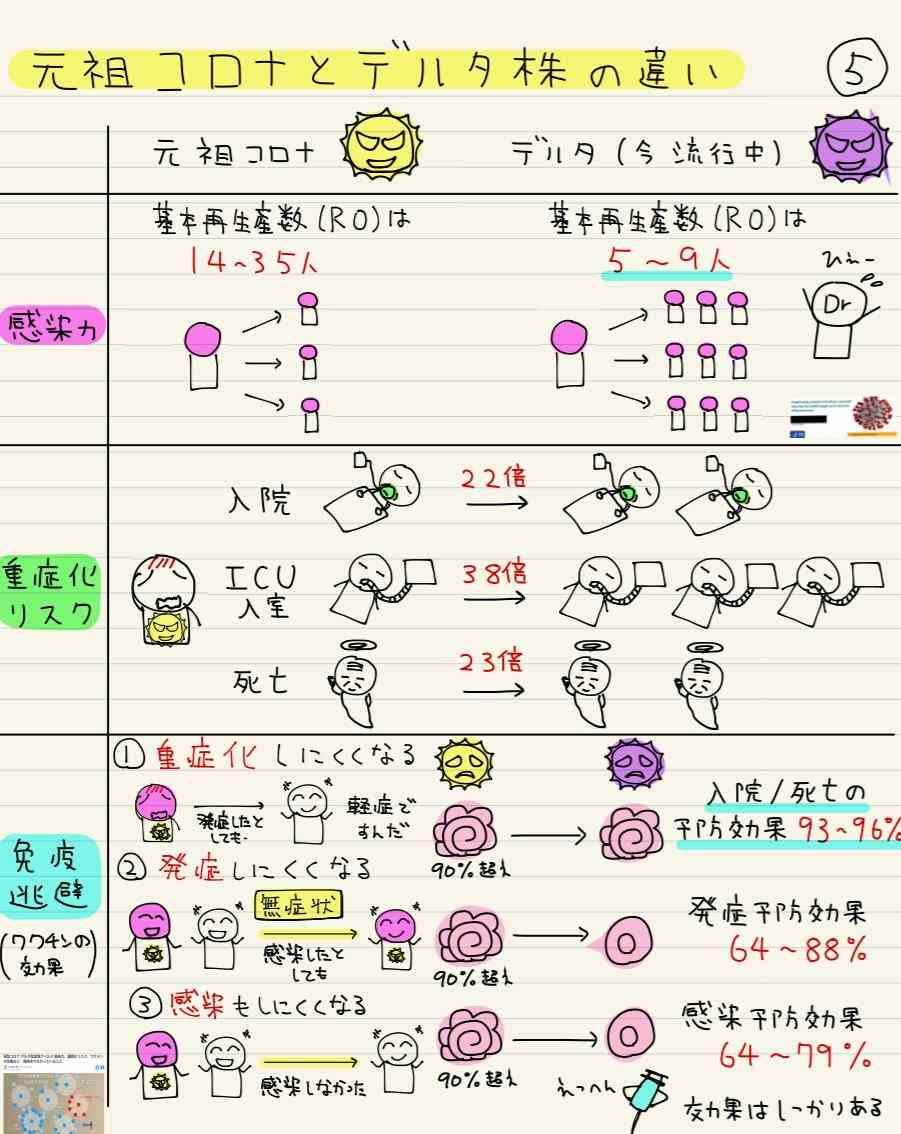 元祖コロナとデルタ株の違い
5
元祖コロナ
デルタ(今流行中)
感染力
基本再生産数(R0)は
14~35人
基本再生産数(R0)は
5~9人
ひぇー
Dr
重症化
リスク
入院
22倍
ICU
入室
38倍
死亡
23倍
免疫
逃避
(ワクチンの
効果)
①重症化しにくくなる
発症したと
しても
軽症で
すんだ
90%超え
入院/死亡の
予防効果 93~96%
②発症しにくくなる
無症状
感染したと
しても
90%超え
発症予防効果
64~88%
③感染もしにくくなる
感染しなかった
90%超え
感染予防効果
64~79%
えっへん
効果はしっかりある